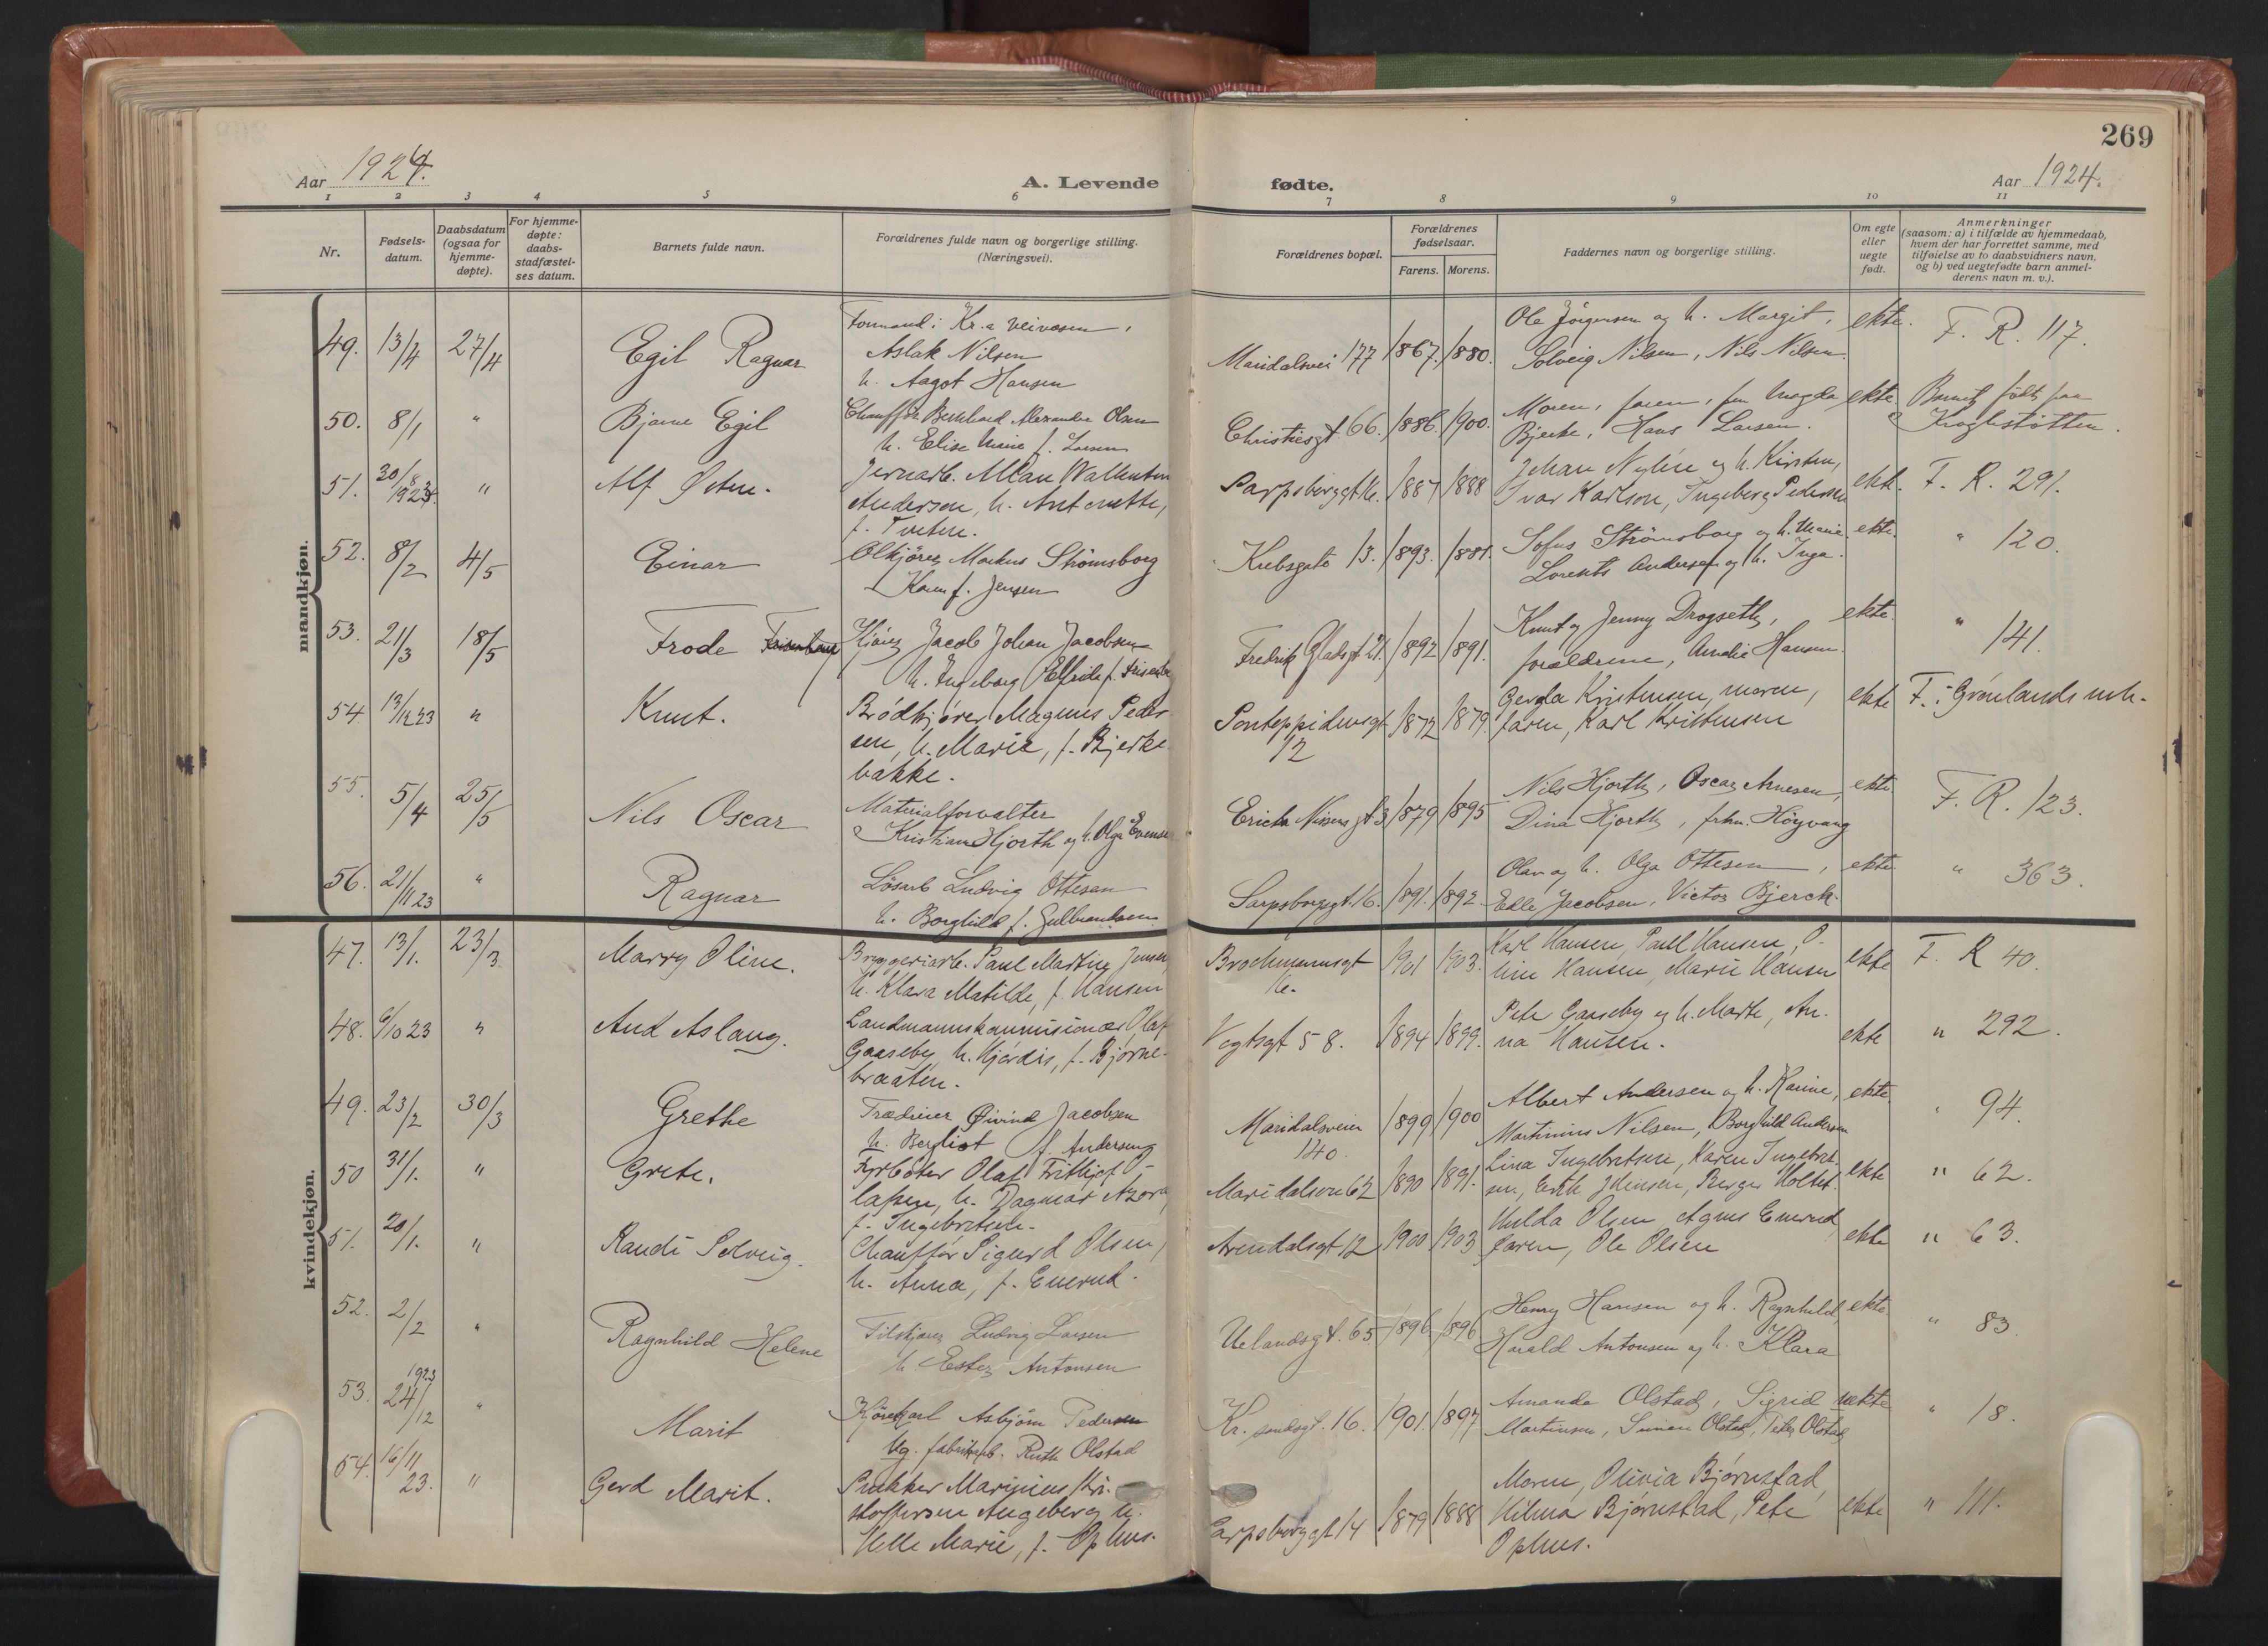 269
Aar 1924.
A. Levende
fødte.
Aar 1924.
1 2 3 4 5 6 7 8 9 10 11
Nr.
Fødsels-
datum.
Daabsdatum
(ogsaa for
hjemme-
døpte).
For hjemme-
døpte:
daabs-
stadfæstel-
ses datum.
Barnets fulde navn.
Forældrenes fulde navn og borgerlige stilling.
(Næringsvei).
Forældrenes bopæl.
Forældrenes
fødselsaar.
Farens. Morens.
Faddernes navn og borgerlige stilling.
Om egte
eller
uegte
født.
Anmerkninger
(saasom: a) i tilfælde av hjemmedaab,
hvem der har forrettet samme, med
tilføielse av to daabsvidners navn,
og b) ved uegtefødte barn anmel-
derens navn m. v.).
mandkjøn.
49. 13/4 27/4 Egil Ragnar
Formand i Kr.a veivæsen,
Aslak Nilsen
h. Aagot Hansen
Maridalsvei 177 1867. 1880.
Ole Jörgensen og h. Margit,
Solveig Nilsen, Nils Nilsen
ekte. F. R. 117.
50. 8/1 " Bjarne Egil
Chauffør Bernhard Alexander Olsen
h. Elise Marie f. Larsen
Christiesgt. 66. 1886. 1900.
Moren, faren, frn Magda
Bjerke, Hans Larsen.
ekte. Barnet født paa
Kroghstøtten.
51. 30/8 1923. " Alf Østen.
Jernarb. Allan Wallentin
Anderson, h. Antonette,
f. Tveten.
Sarpsborggt. 16. 1887 1888
Johan Nylén og h. Kirsten,
Ivar Karlson, Ingeborg Pedersen
ekte. F. R. 291.
52. 8/2 4/5 Einar
Ölkjörer Markus Strömsborg
h Karen f. Jensen
Krebsgate 13. 1893. 1881.
Sofus Strömsborg og h. Marie
Lorents Andersen og h. Inga.
ekte. " 120.
53. 21/3 18/5 Frode
Kjörer Jacob Johan Jacobsen
h. Ingeborg Elfride f. Frisenberg
Fredrik Gladsgt 21. 1892 1891.
Knut og Jenny Drogseth,
forældrene, Amalie Hansen.
ekte. " 141.
54 13/12 23 " Knut.
Brödkjörer Magnus Peder-
sen, h. Marie, f. Bjerke
bakke.
Pontoppidansgt
12
1872 1879.
Gerda Kristensen, moren,
faren, Karl Kristensen
ekte F. i Grønlands mh.
55. 5/4 25/5 Nils Oscar
Materialforvalter
Kristian Hjorth og h. Olga Evensen
Erich Nissens gt 3 1879 1895
Nils Hjorth, Oscar Arnesen,
Dina Hjorth, frkn. Höyvang
ekte F. R. 123.
56. 21/11 23 " Ragnar
Lösarb Ludvig Ottesen
h. Borghild f. Gulbrandsen
Sarpsborggt. 16. 1891. 1892
Olav og h. Olga Ottesen,
Edle Jacobsen, Victor Bjerck.
ekte " 363.
kvindekjøn.
47. 13/1. 23/3 Marry Oline.
Bryggeriarb. Paul Martin Jensen,
h. Klara Matilde, f. Hansen
Brochmannsgt
16.
1901 1903.
Karl Hansen, Paul Hansen, O-
line Hansen, Marie Hansen
ekte F. R 40.
48. 6/10 23 " Aud Aslaug.
Landmannskommisionær Olaf
Gaaseby, h. Hjördis, f. Björne-
braaten.
Vogtsgt 58. 1894 1899.
Peter Gaaseby og h. Marte, An-
na Hansen.
ekte " 292.
49. 23/2 30/3 Grethe
Trædreier Øivind Jacobsen
h. Bergliot f. Andersen
Maridalsveien
140.
1899 1900
Albert Andersen og h. Karine,
Martinius Nilsen, Borghild Andersen
ekte " 94.
50 31/1. " Grete.
Fyrböter Olaf Frithjof O-
lafsen, h. Dagmar Azora,
f. Ingebretsen.
Maridalsvn 62 1890 1891.
Lina Ingebretsen, Karen Ingebret-
sen, Erik Johnsen, Birger Holtet.
ekte " 62.
51. 20/1. " Randi Solveig.
Chauffør Sigurd Olsen,
h. Anna, f. Enerud.
Arendalsgt 12 1900 1903
Hulda Olsen Agnes Enerud,
faren, Ole Olsen
ekte " 63.
52. 2/2 " Ragnhild Helene
Filskjærer Ludvig Larsen
h. Ester Antonsen
Uelandsgt. 65 1896. 1896
Henry Hansen og h. Ragnhild,
Harald Antonsen og h. Klara
ekte " 83.
53. 1923 24/12 " Marit
Kjörekarl Asbjörn Pedersen
Ug. fabrikarb. Ruth Olstad
Kr. sandsgt. 16. 1901. 1897
Amanda Olstad, Sigrid
Martinsen, Simen Olstad, Peter Olstad
uekte " 18.
54. 16/11 23. " Gerd Marit.
Snekker Marinius Kri-
stoffersen Angeberg h.
Helle Marie, f. Ophus.
Sarpsborggt 14 1879 1888
Moren, Olivia Bjørnstad,
Hilma Bjørnstad, Peter
Ophus.
ekte " 111.